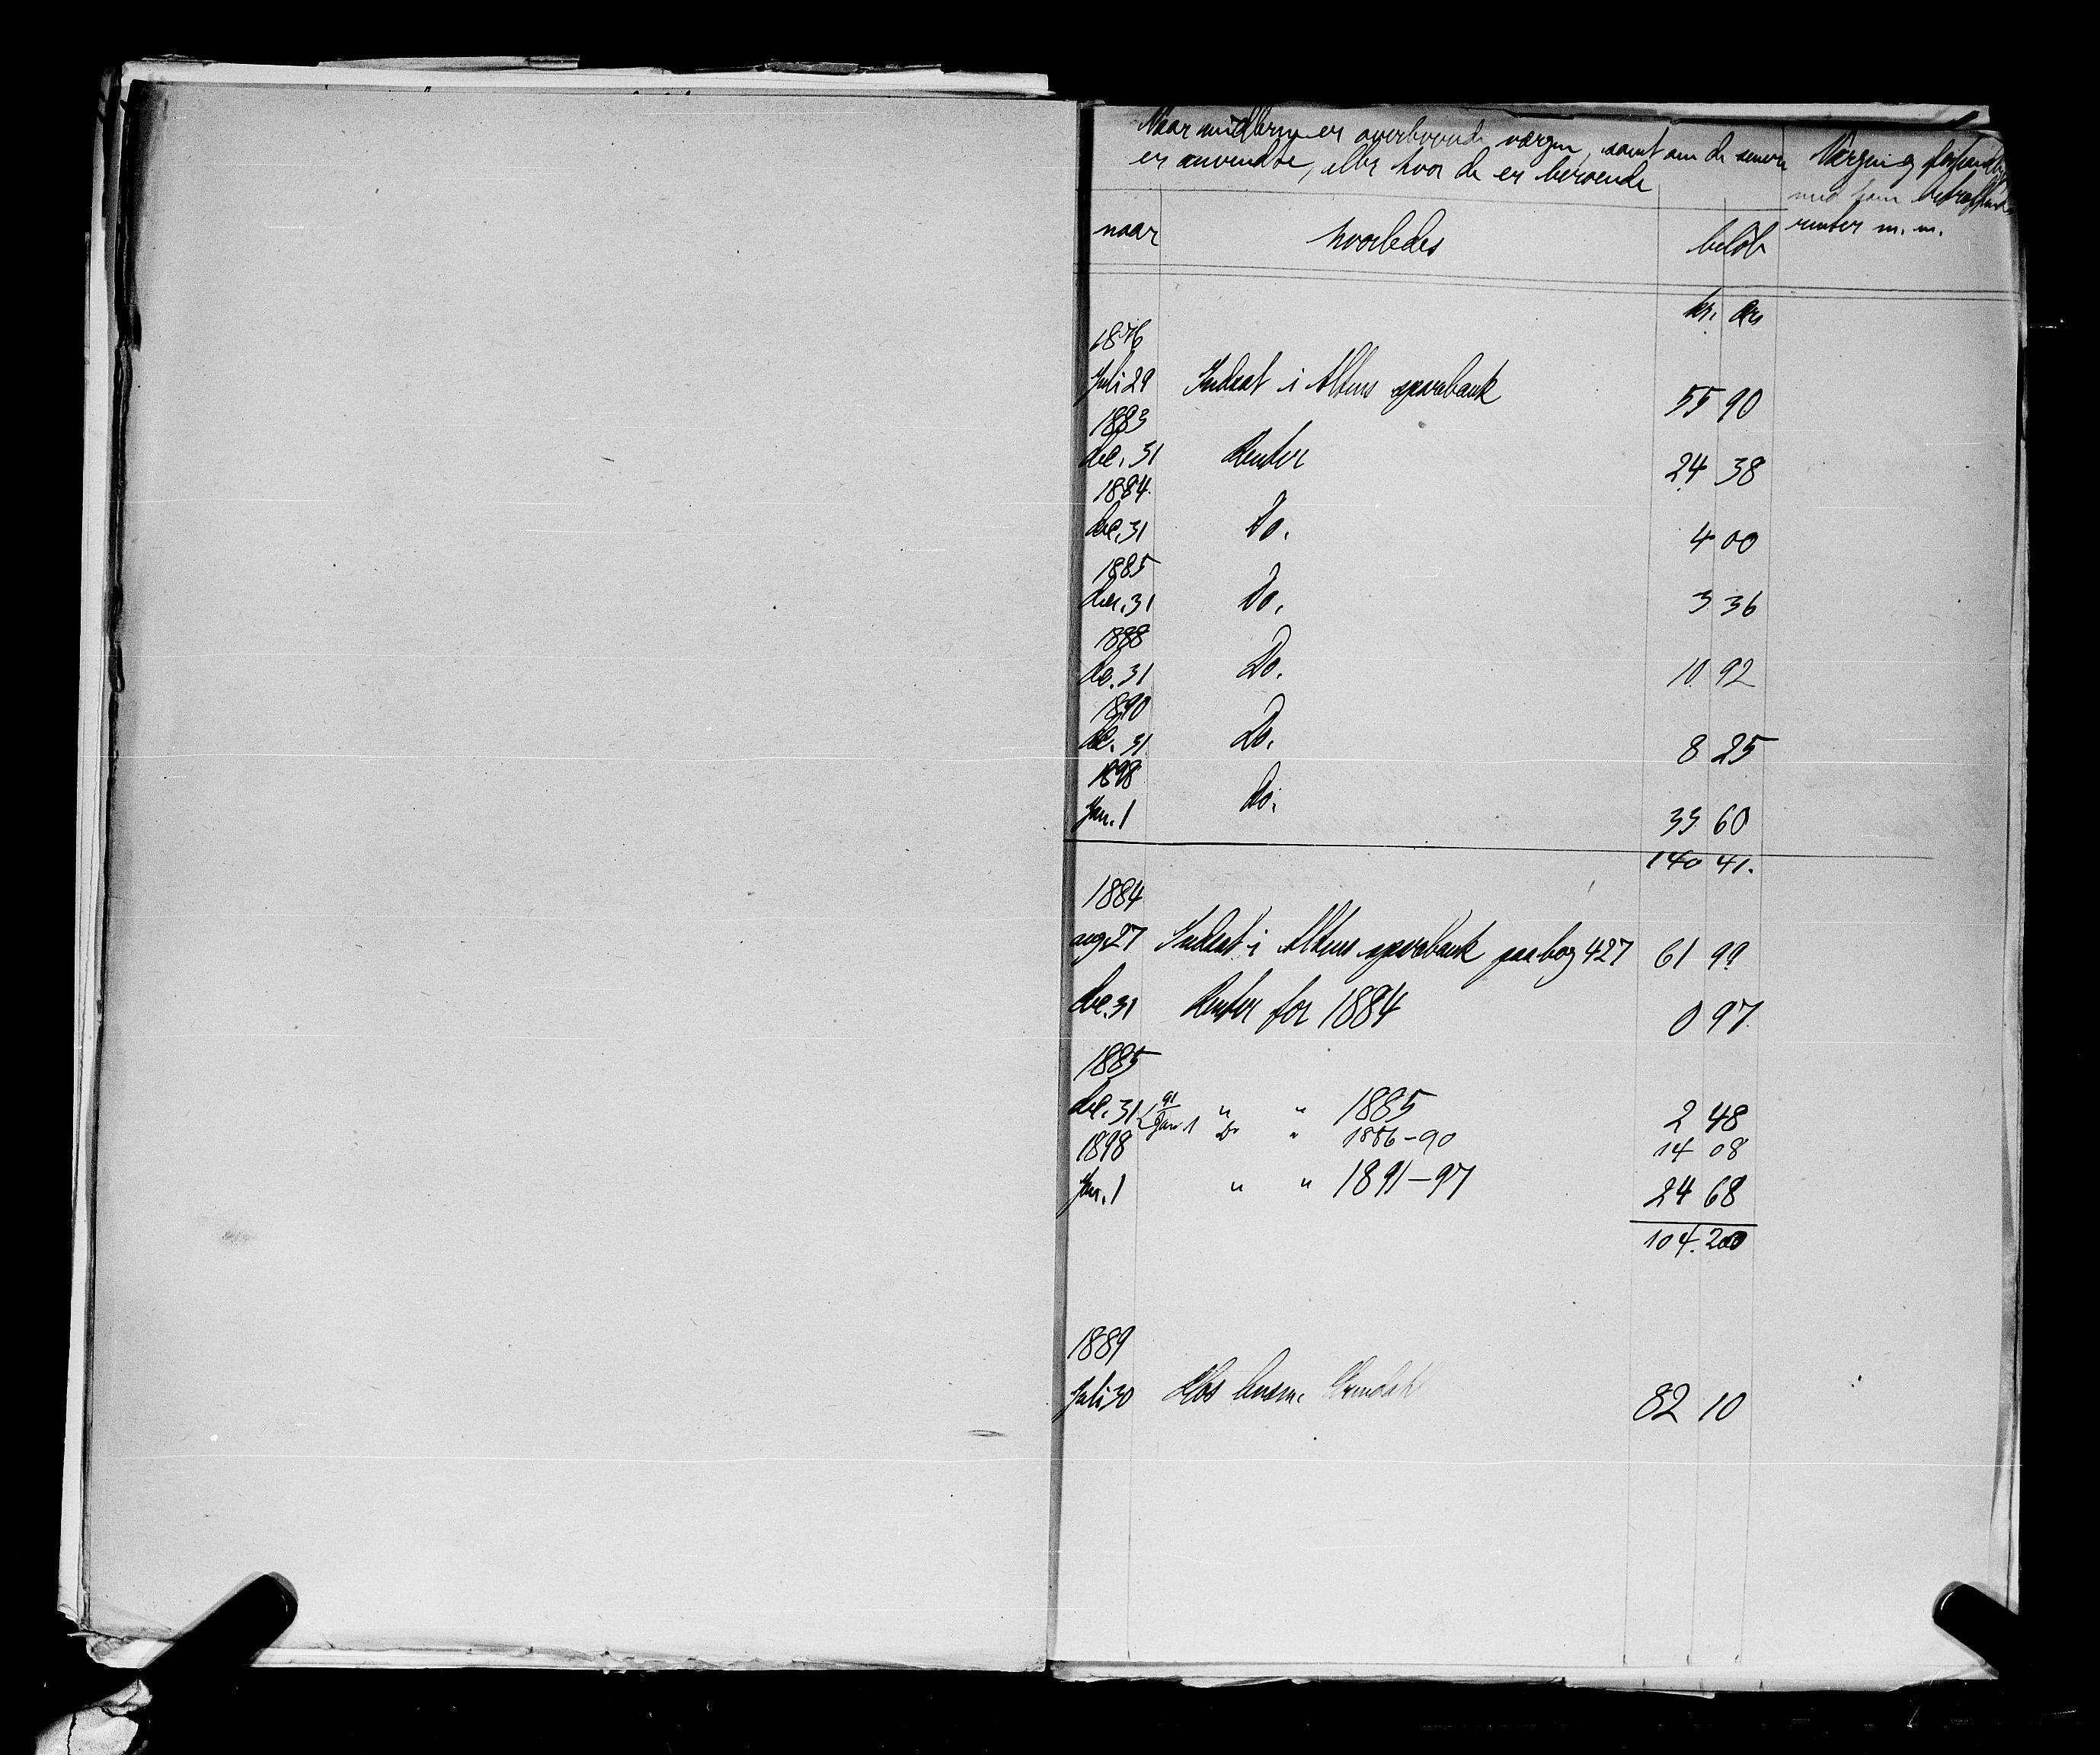 Naar midlerne er overleverede værgen, samt om de senere
er anvendte, eller hvor de er beroende
Værgen og
med ham betræffende
renter m. m.
naar hvorledes beløb
kr. øre
1876
Juli 29 Indsat i Altens sparebank 55 90
1883
dec. 31 Renter 24 38
1884
dec. 31 Do. 4 00
1885
dec. 31 Do. 3 36
1888
dec. 31 Do. 10 92
1890
dec. 31 Do. 8 25
1898
Jan. 1 Do. 33 60
140 41.
1884
aug. 27 Indsat i Altens sparebank paa bog 427 61 99
dec. 31 Renter for 1884 0 97
1885
dec. 31 " " 1885 2 48
91 Jan 1 Do " 1886-90 14 08
1898
Jan. 1 " " 1891-97 24 68
104. 20
1889
Juli 30 Hos 82 10